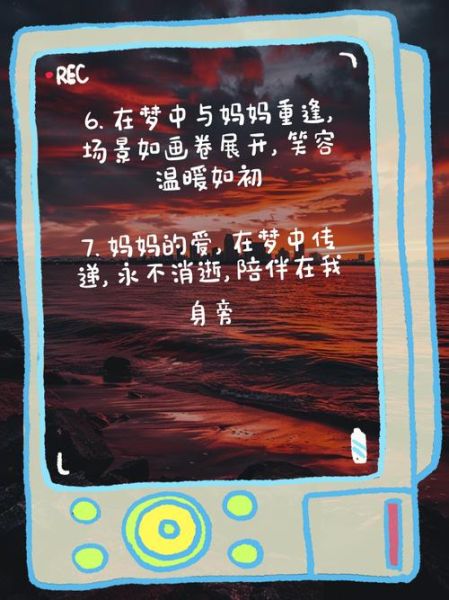 REC
6. 在梦中与妈妈重逢,
场景如画卷展开, 笑容
温暖如初
7. 妈妈的爱, 在梦中传
递, 永不消逝, 陪伴在我
身旁